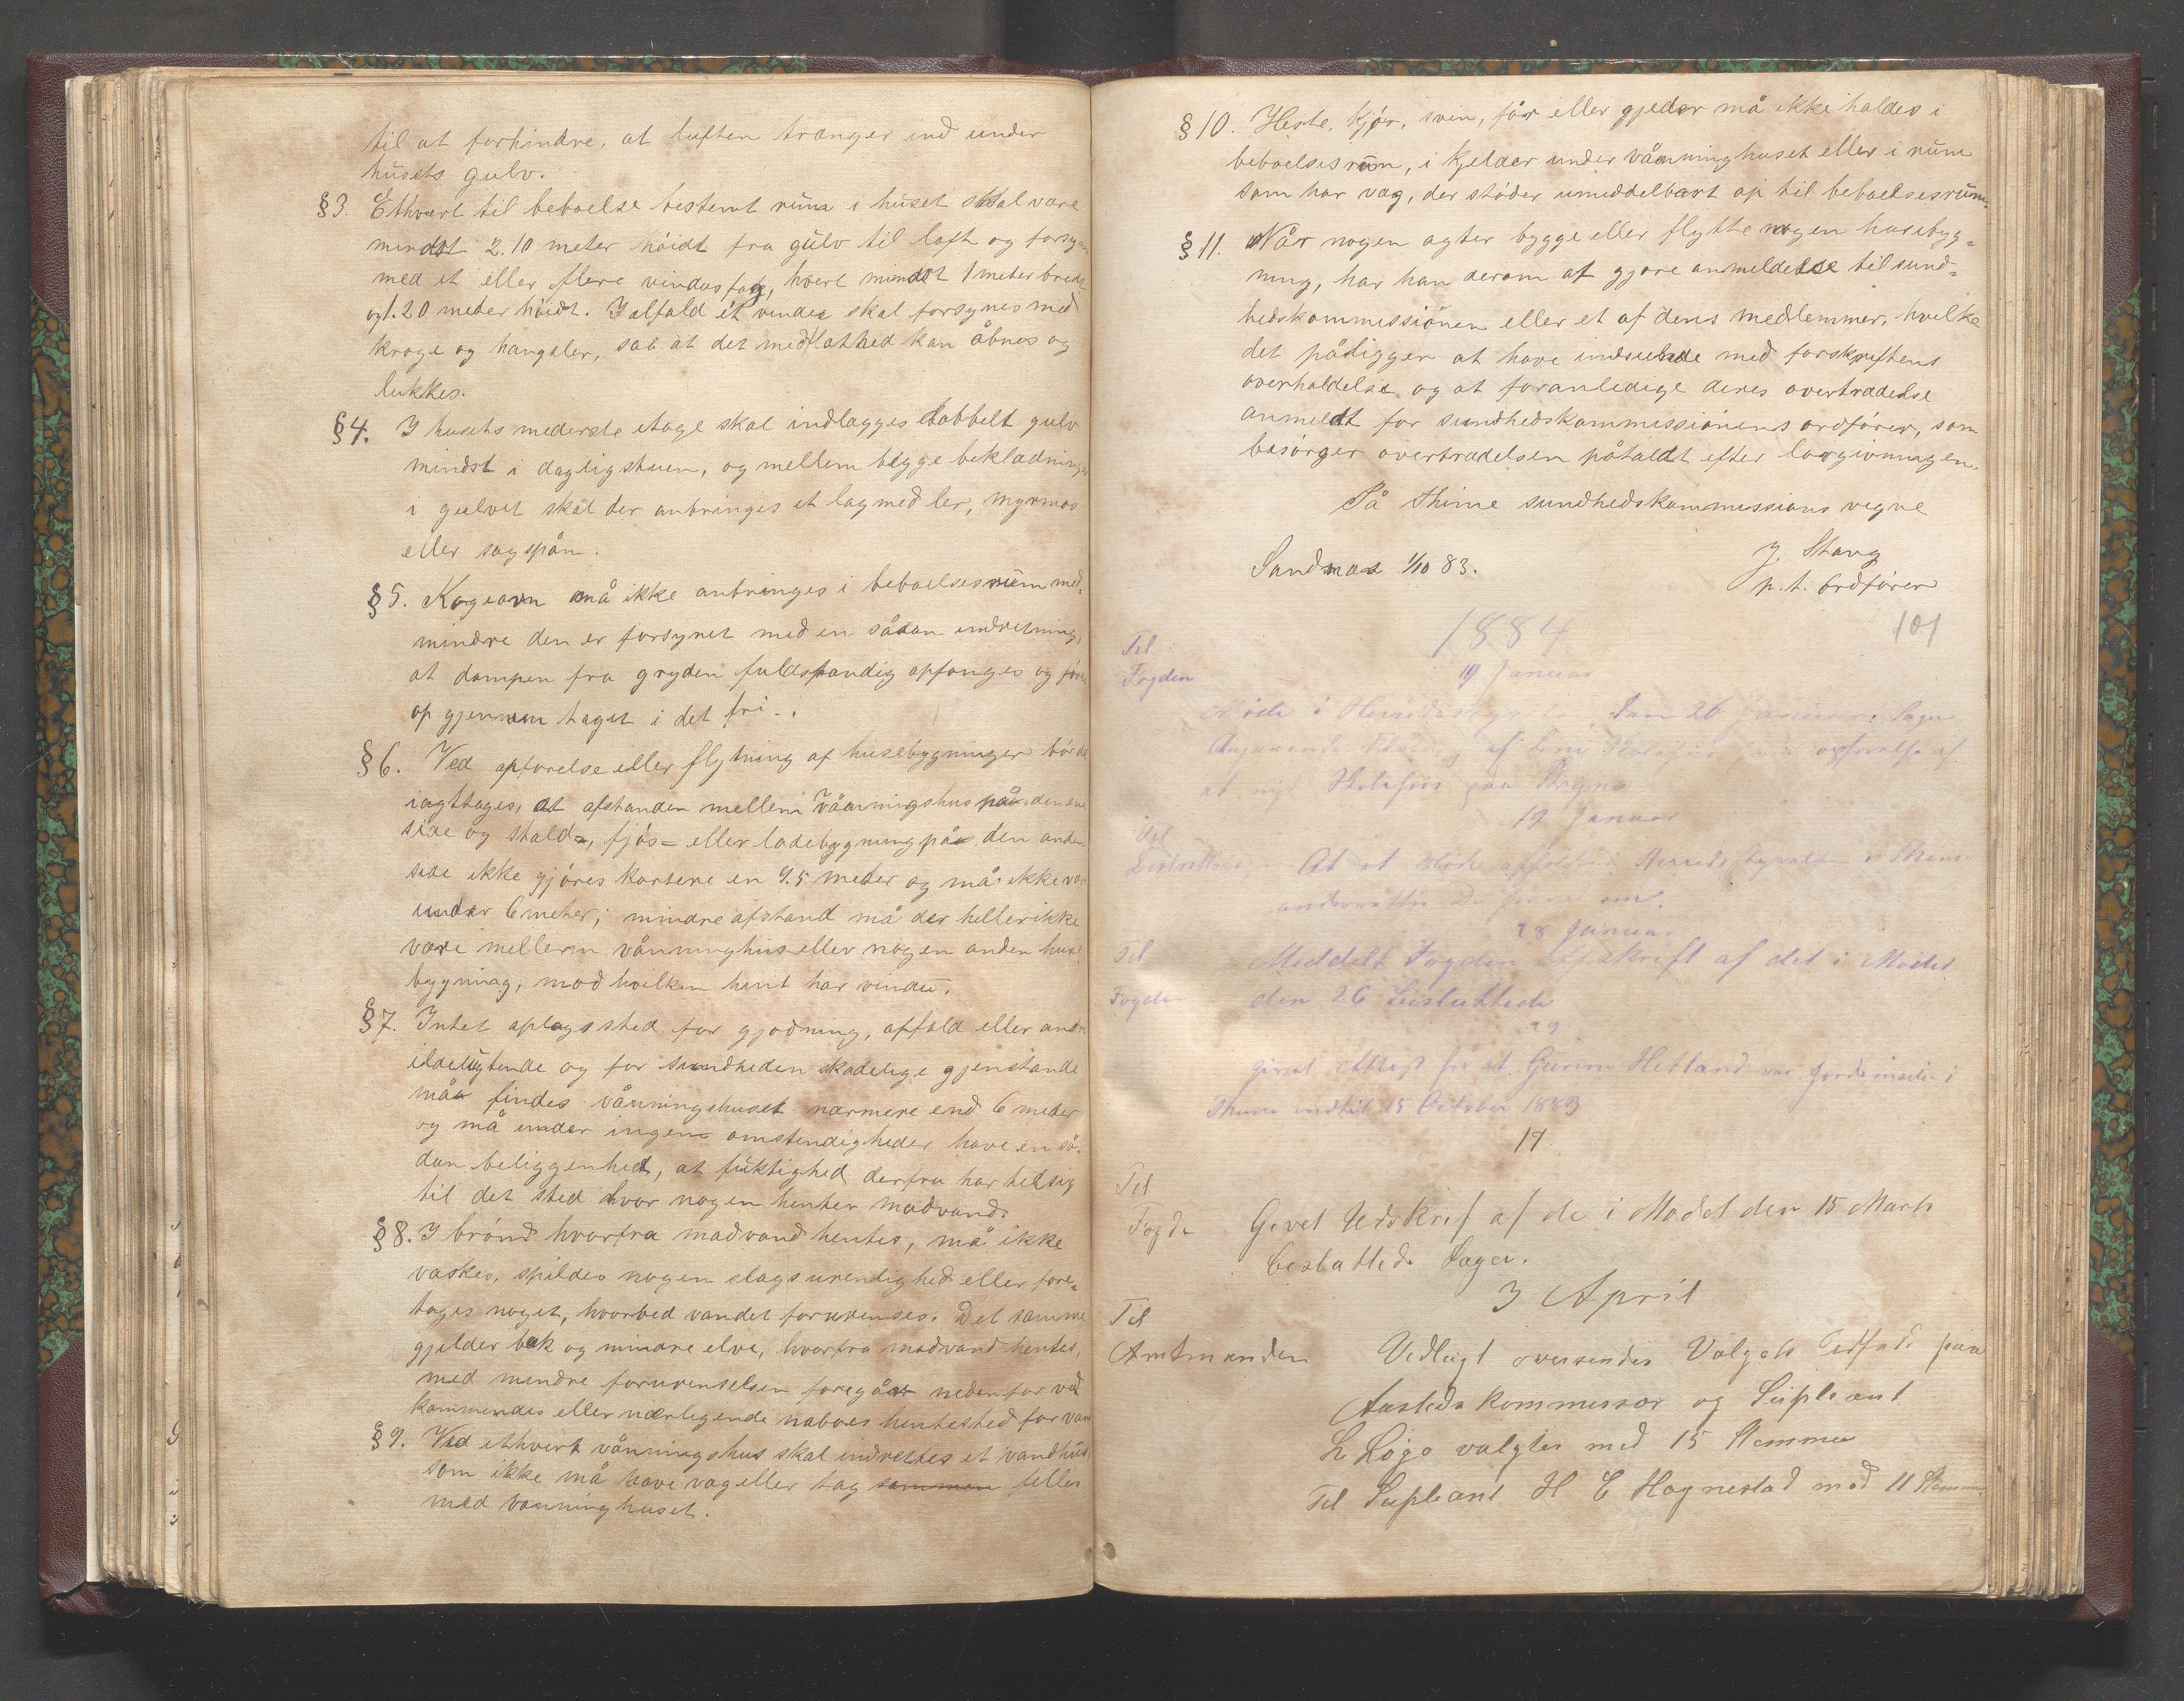 til at forhindre, at luften trænger ind under
husets gulv.
§3. Ethvert til beboelse bestemt rum i huset skal være
mindst 2.10 meter höidt fra gulv til loft og forsynes
med et eller flere vindusfag, hvert mindst 1 meter bredt
og 1.20 meter höidt. I alfald ét vindu skal forsynes med
kroge og hængsler, saa at det med lethed kan åbnes og
lukkes.
§4. I husets nederste etage skal indlægges dobbelt gulv
mindst i dagligstuen, og mellem begge beklædninger
i gulvet skal der anbringes et lag med ler, myrmos
eller sagspån.
§5. Kogeovn må ikke anbringes i beboelsesrum med-
mindre den er forsynet med en sådan indretning,
at dampen fra gryden fuldstændig opfanges og föres
op gjennem taget i det fri.
§6. Ved opförelse eller flytning af husebygninger bör
iagttages, at afstanden mellem våningshus på den ene
side og stald-, fjös- eller ladebygning på den anden
side ikke gjöres kortere en 9.5 meter og må ikke være
under 6 meter; mindre afstand må der heller ikke
være mellem våninghus eller nogen anden huse
bygning, mod hvilken hint har vindu.
§7. Intet oplagssted for gjödning, affald eller andre
ildelugtende og for sundheden skadelige gjenstande
må findes våningshuset nærmere end 6 meter
og må under ingen omstendigheder have en så-
dan beliggenhed, at fuktighed derfra har tilsig
til det sted hvor nogen henter madvand.
§8. I brönd hvorfra madvand hentes, må ikke
vaskes, spildes nogen slags urenlighed eller fore-
tages noget, hvorved vandet forurenses. Det samme
gjelder bæk og mindre elve, hvorfra madvand hentes,
med mindre forurenselsen foregår nedenfor ved
kommendes eller nærligende naboes hentested for vand
§9. Ved ethvert våningshus skal indrettes et vandhus,
som ikke må have væg eller tag sammen felles
med vaninghuset.
§10. Heste, kjör, svin, får eller gjeder må ikke holdes i
beboelsesrum, i kjelder under våninghuset eller i rum
som har væg, der stöder umiddelbart op til beboelsesrum.
§11. Når nogen agter bygge eller flytte nogen husebyg-
ning, har han derom at gjöre anmeldelse til sund-
hedskommissiönen eller et af dens medlemmer, hvilke
det påligger at have indseende med forskriftens
overholdelse og at foranledige deres overtrædelse
anmeldt for sundhedskommissiönens ordförer, som
besörger overtrædelsen påtaldt efter lovgivningen.
På Thime sundhedskommissions vegne
J. Stang
Sandnes 1/10 83.
p.t. ordförer
101
1884
Til
Fogden
19 Januar
Möde i Herredsstyrelsen den 26 Januar. Sager
Angaaende af opförelse af
et nyt Skolehus paa Bryne
19 Januar
Til
At et Möde afholdes Herredsstyrelsen i Thime
underrettes De
28 Januar
Til
Fogden
Meddelt Fogden Afskrift af det i Mödet
den 26 besluttede
29
givet Attest for at Gurine Hetland var Jordemoder i
Thime indtil 15 October 1883
17.
Til
Fogden
Givet Udskrif af de i Mödet den 15 Marts
besluttede Sager.
3 April
Til
Amtmanden
Vedlagt oversendes Valgets Udfald paa
kommissær og Supleant
L Lÿge valgtes med 15 Stemmer
Til Supleant H E Hognestad med 11 Stemmer